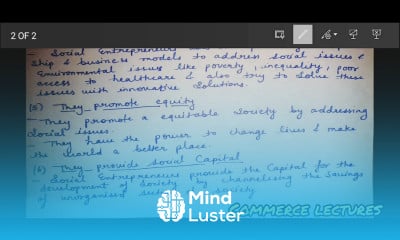 2 OF 2
- Social Entrepreneurs
ship & business models to address social issues &
Environmental issues like poverty, inequality, poor
access to healthcare & also try to solve these
issues with innovative solutions.
(5) They promote equity
- They promote a equitable society by addressing
social issues.
- They have the power to change lives & make
the world a better place.
(6) They provide social Capital
- Social Entrepreneurs provide the Capital for the
development of society by channelising the savings
of unorganised society
Mind
Luster
COMMERCE LECTURES